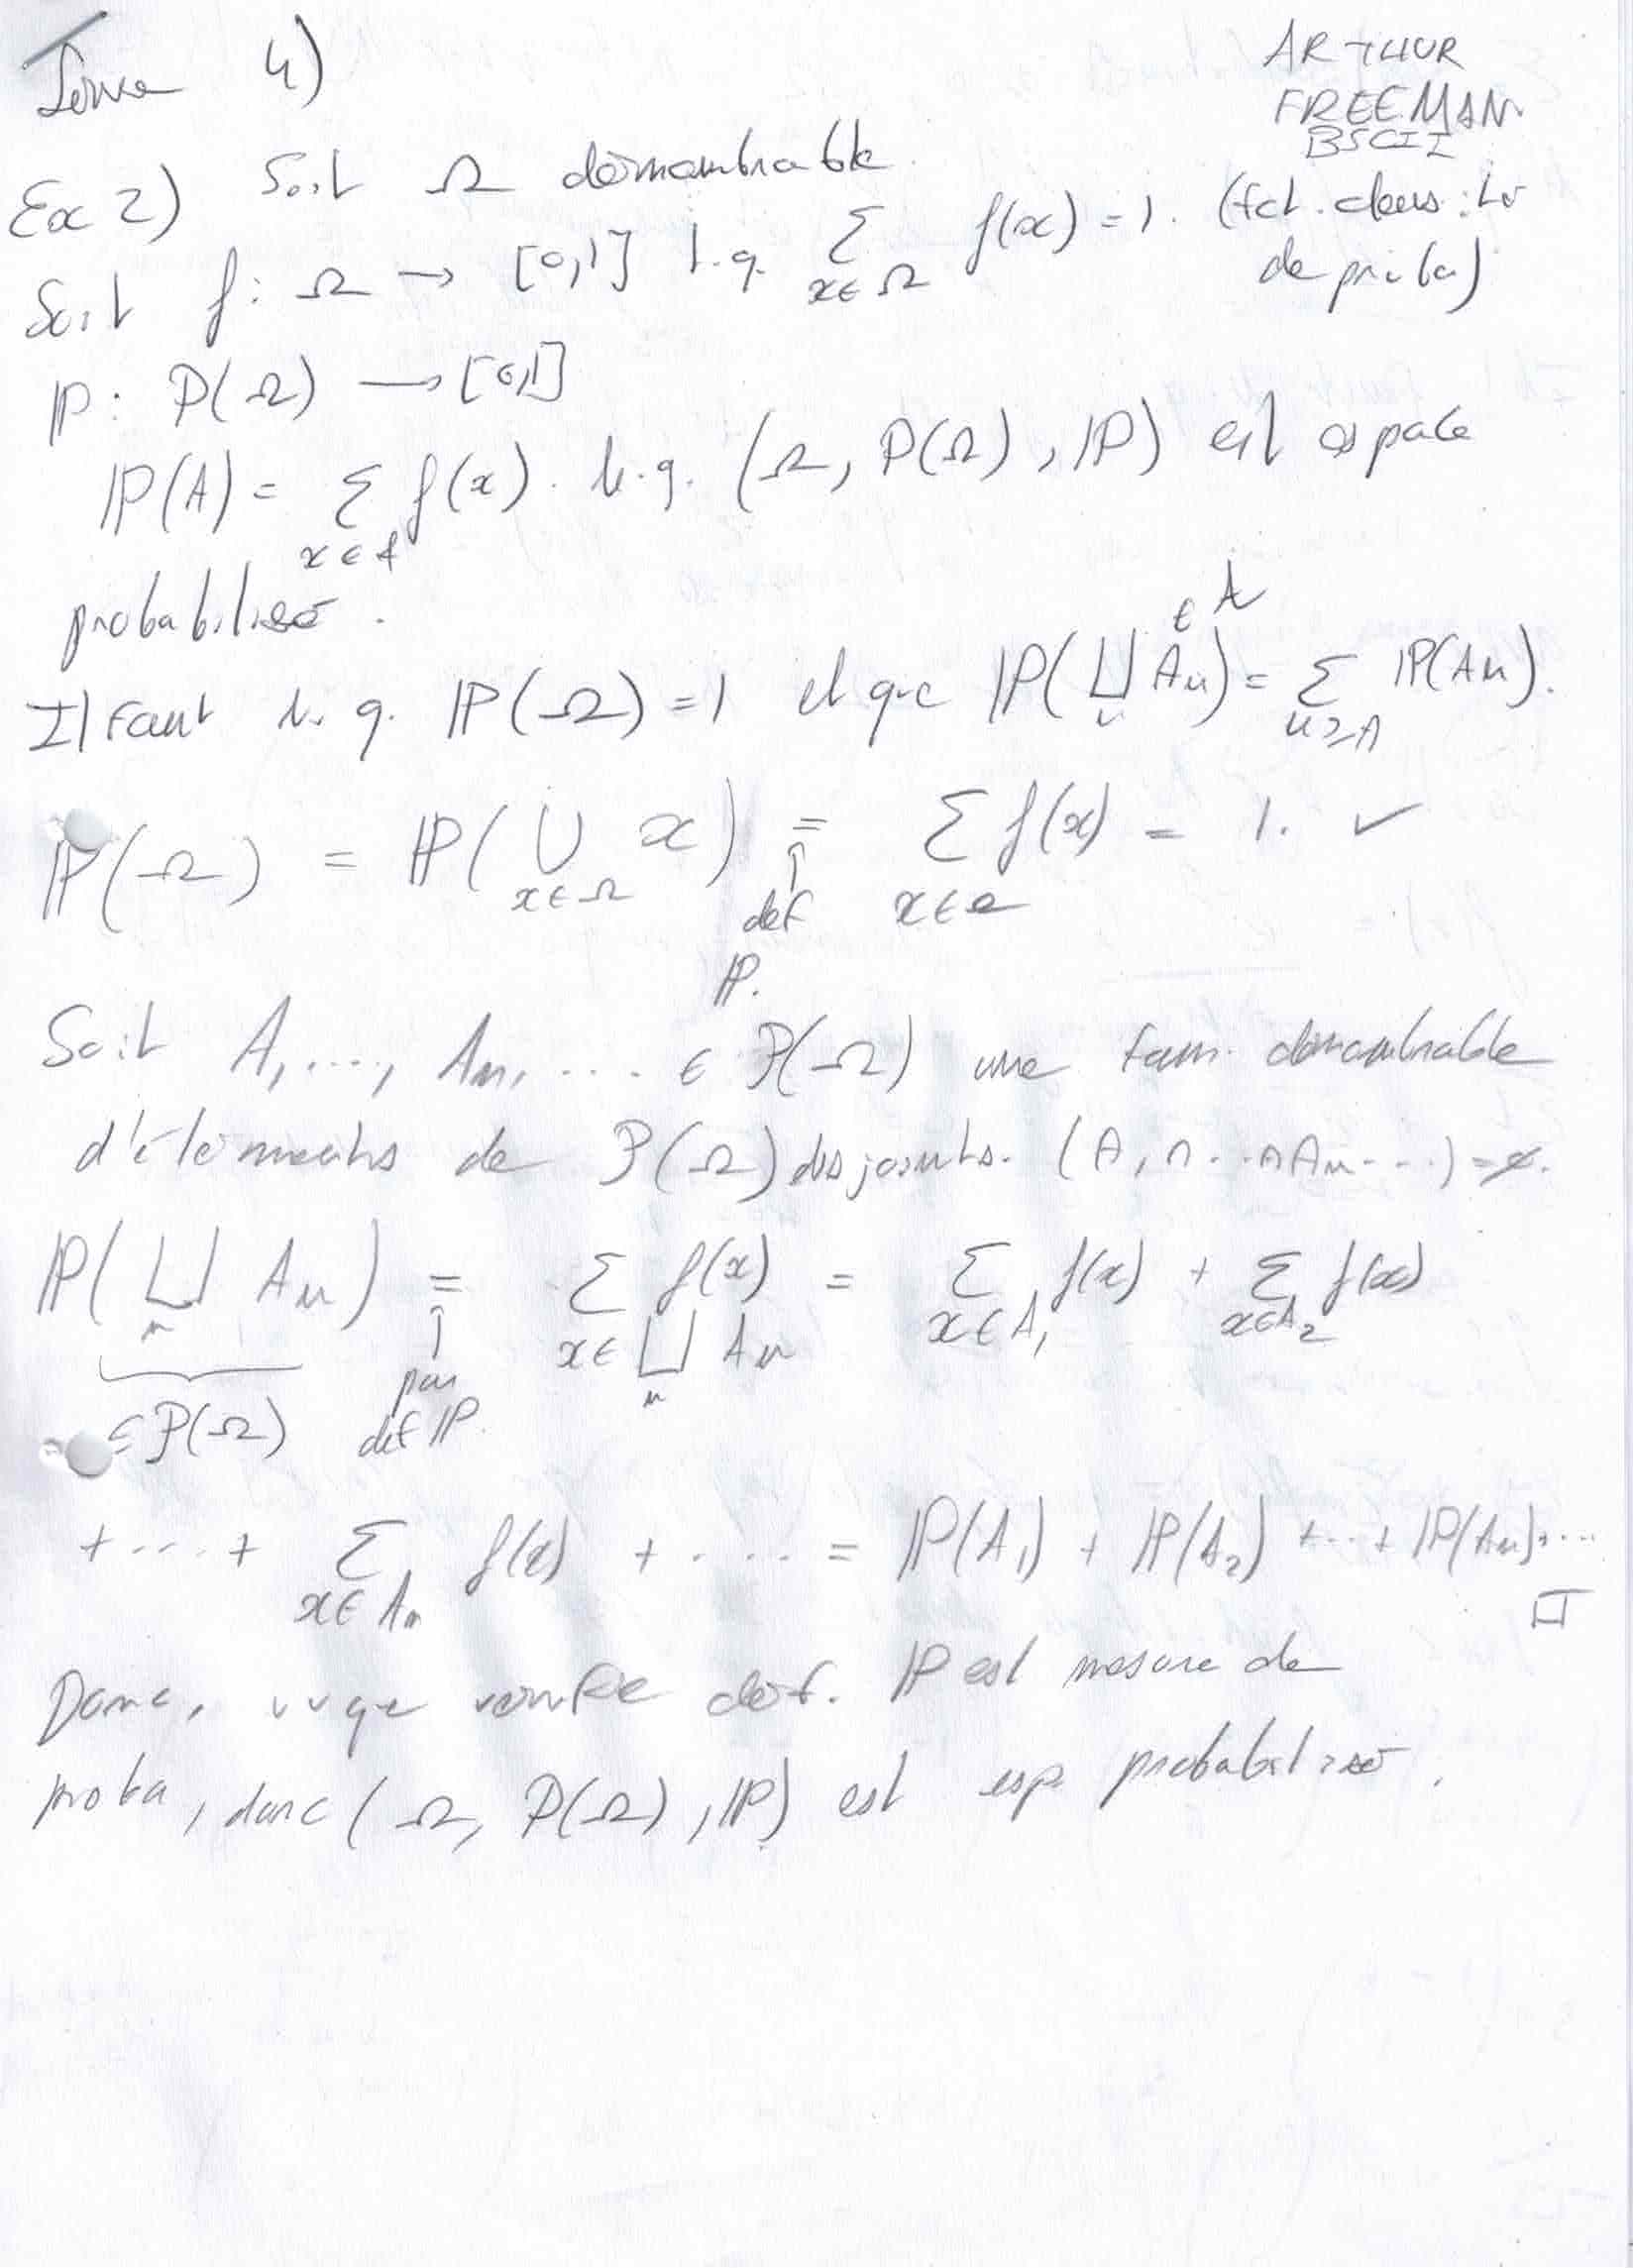 Série 4)
ARTHUR
FREEMAN
BSCII
Ex 2) Soit Ω dénombrable
Soit f: Ω → [0,1] t.q. Σ_{x∈Ω} f(x) = 1. (fct. densité
de proba)
ℙ: P(Ω) → [0,1]
ℙ(A) = Σ_{x∈A} f(x). t.q. (Ω, P(Ω), ℙ) est espace
probabilisé.
Il faut t.q. ℙ(Ω) = 1 et que ℙ(⊔_n A_n) = Σ_{n≥1} ℙ(A_n).
∈ A
ℙ(Ω) = ℙ(∪_{x∈Ω} x) = Σ_{x∈Ω} f(x) = 1. ✓
↑
def
ℙ.
Soit A_1, ..., A_n, ... ∈ P(Ω) une fam. dénombrable
d'éléments de P(Ω) disjoints. (A_1 ∩ ... ∩ A_n ...) = ∅.
ℙ(⊔_n A_n) = Σ_{x∈⊔_n A_n} f(x) = Σ_{x∈A_1} f(x) + Σ_{x∈A_2} f(x)
∈ P(Ω)
↑
par
def ℙ.
+ ... + Σ_{x∈A_n} f(x) + ... = ℙ(A_1) + ℙ(A_2) + ... + ℙ(A_n) + ...
□
Donc, vu que vérifie déf. ℙ est mesure de
proba, donc (Ω, P(Ω), ℙ) est esp. probabilisé.